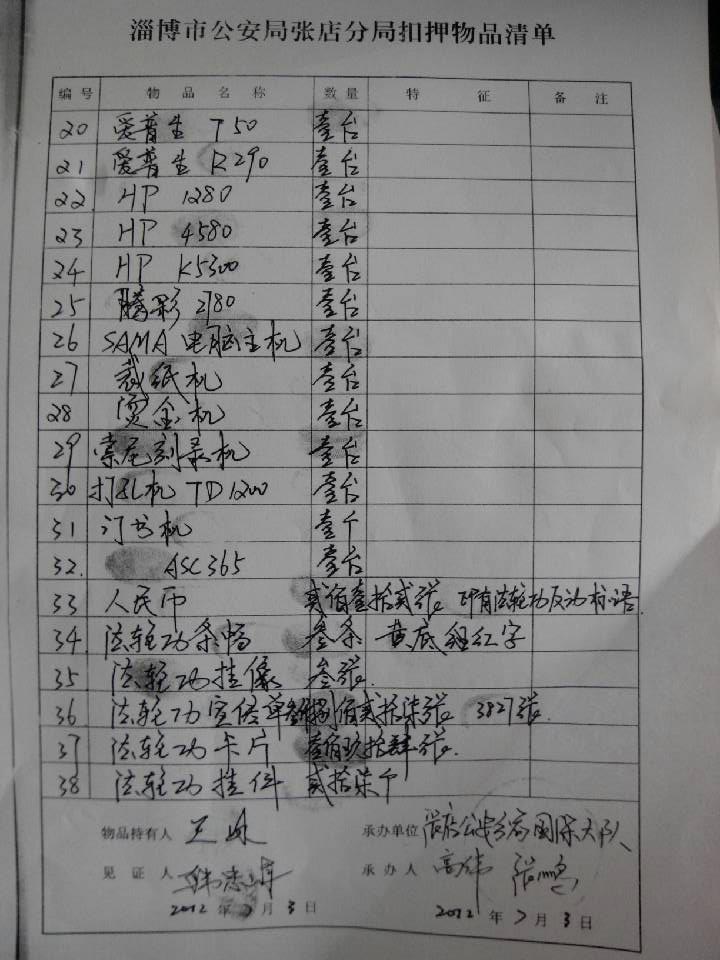 淄博市公安局张店分局扣押物品清单
编号 物品名称 数量 特征 备注
20 爱普生 T50 壹台
21 爱普生 R290 壹台
22 HP 1280 壹台
23 HP 4580 壹台
24 HP K5300 壹台
25 腾彩 2780 壹台
26 SAMA 电脑主机 壹台
27 裁纸机 壹台
28 烫金机 壹台
29 索尼刻录机 壹台
30 打孔机 TD1200 壹台
31 订书机 壹个
32. ASC365 壹台
33 人民币 贰佰壹拾贰张 印有法轮功反动标语.
34. 法轮功条幅 叁条 黄底红字
35 法轮功挂像 叁张.
36 法轮功宣传单 佰贰拾柒张 3827张.
37 法轮功卡片 壹佰玖拾 张.
38 法轮功挂件 贰拾柒个
物品持有人 王 承办单位 张店公安分局国保大队
见证人 韩 承办人 高伟 张鹏
2012年7月3日 2012年7月3日